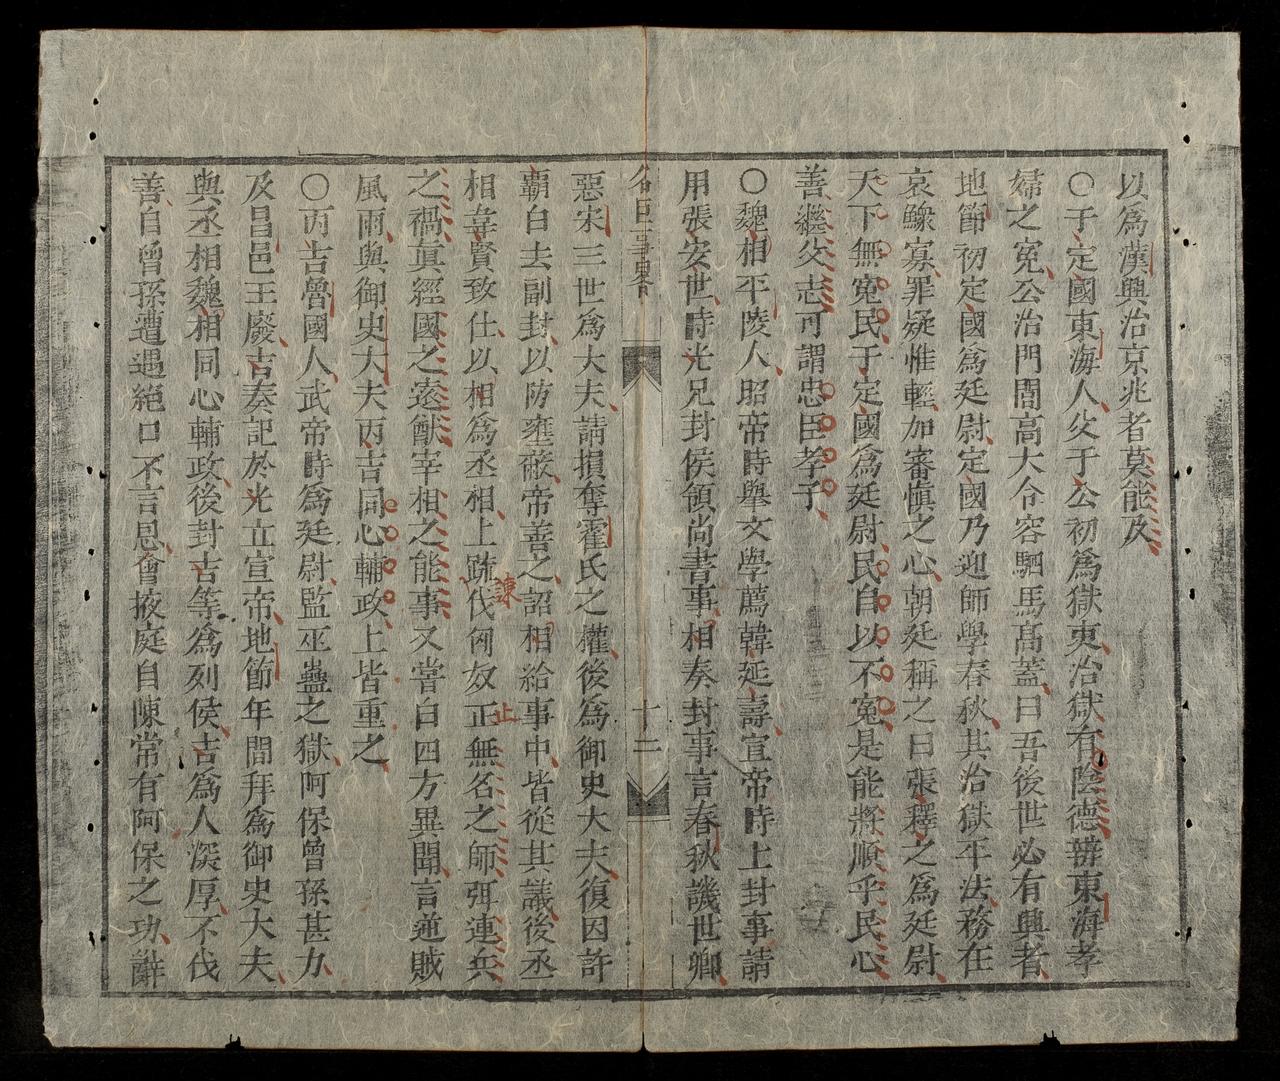 以爲漢興治京兆者莫能及
○于定國東海人父于公初爲獄吏治獄有陰德辨東海孝
婦之冤公治門閭高大令容駟馬髙蓋曰吾後世必有興者
地節初定國爲廷尉定國乃迎師學春秋其治獄平法務在
哀鰥寡罪疑惟輕加審慎之心朝廷稱之曰張釋之爲廷尉
天下無冤民于定國爲廷尉民自以不冤是能將順乎民心
善繼父志可謂忠臣孝子
○魏相平陵人昭帝時舉文學薦韓延壽宣帝時上封事請
用張安世時光兄封侯領尚書事相奏封事言春秋譏世卿
名臣事畧
十二
惡宋三世爲大夫請損奪霍氏之權後爲御史大夫復因許
霸白去副封以防壅蔽帝善之詔相給事中皆從其議後丞
相韋賢致仕以相爲丞相上疏伐匈奴正無名之師弭連兵
諫
止
之禍眞經國之遠猷宰相之能事又嘗白四方異聞言逆賊
風雨與御史大夫丙吉同心輔政上皆重之
○丙吉魯國人武帝時爲廷尉監巫蠱之獄阿保曾孫甚力
及昌邑王廢吉奏記於光立宣帝地節年間拜爲御史大夫
與丞相魏相同心輔政後封吉等爲列侯吉爲人深厚不伐
善自曾孫遭遇絕口不言恩會掖庭自陳常有阿保之功辭